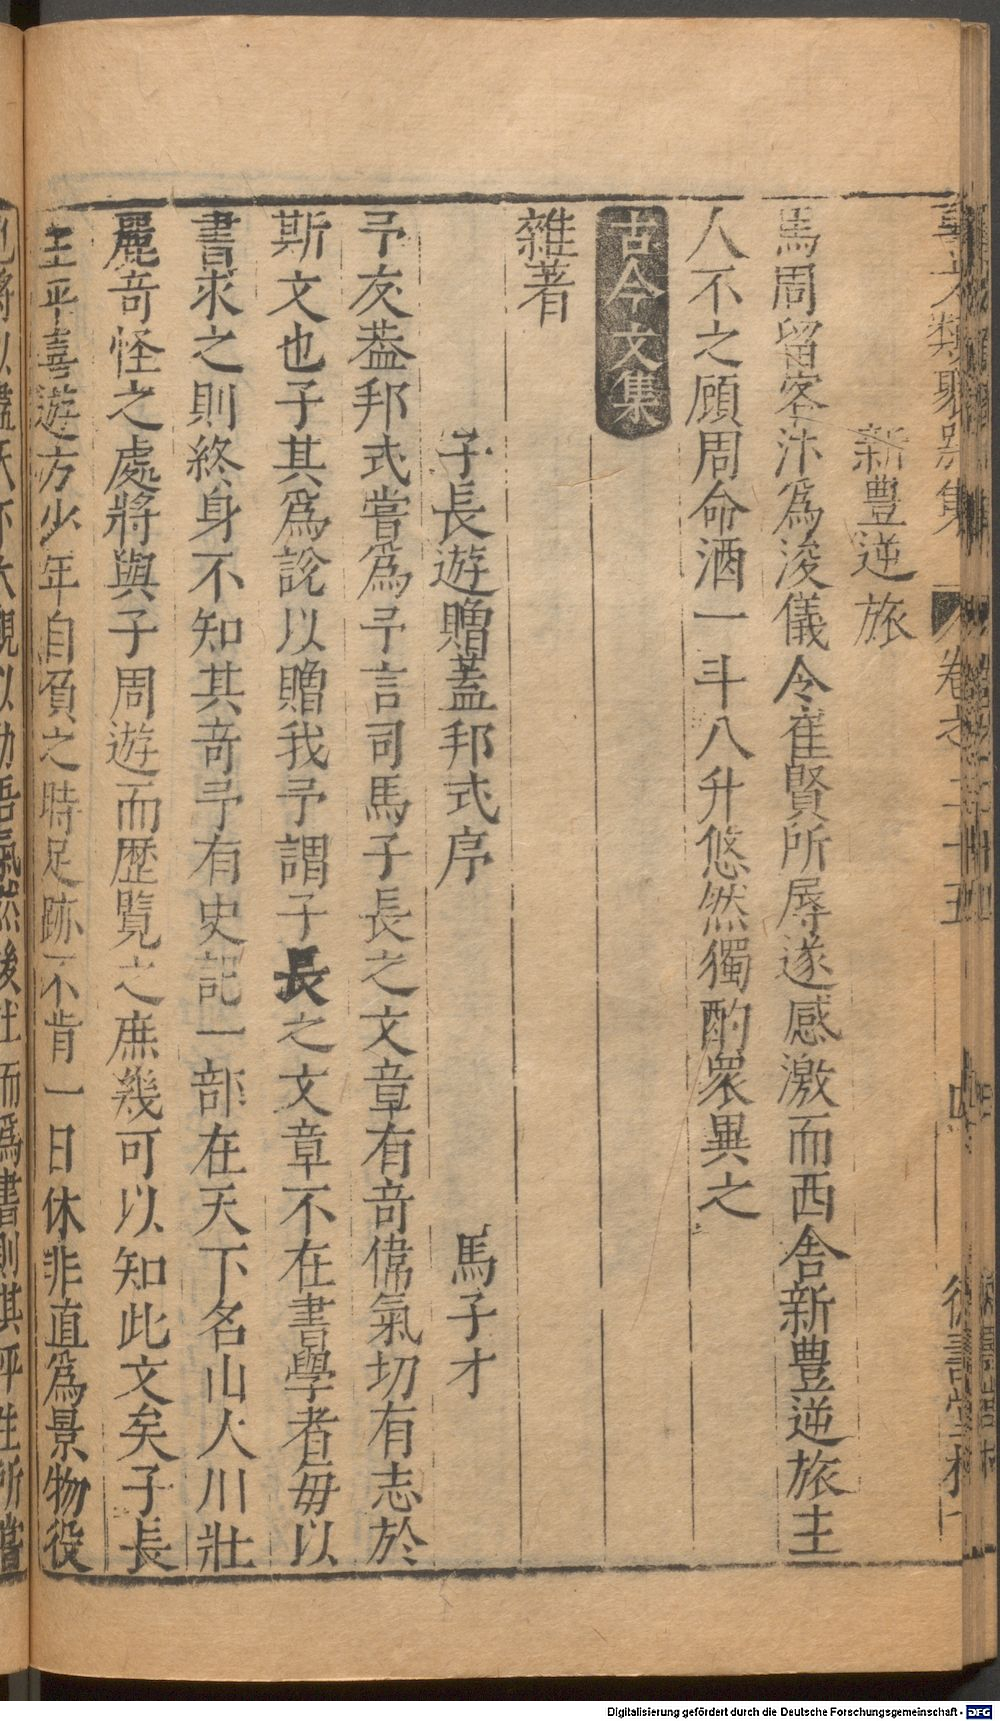 事文類聚別集 卷之二十五 德壽堂梓
新豊逆旅
馬周留客汴爲浚儀令崔賢所辱遂感激而西舍新豊逆旅主
人不之顧周命酒一斗八升悠然獨酌衆異之
古今文集
雜著
子長遊贈蓋邦式序 馬子才
予友葢邦式嘗爲予言司馬子長之文章有奇偉氣切有志於
斯文也子其爲說以贈我予謂子長之文章不在書學者每以
書求之則終身不知其奇予有史記一部在天下名山大川壯
麗奇怪之處將與子周遊而歴覽之庶幾可以知此文矣子長
生平喜遊方少年自負之時足跡不肯一日休非直爲景物役
也將以盡天下大觀以助吾氣然後吐而爲書則其平生所嘗
Digitalisierung gefördert durch die Deutsche Forschungsgemeinschaft - DFG